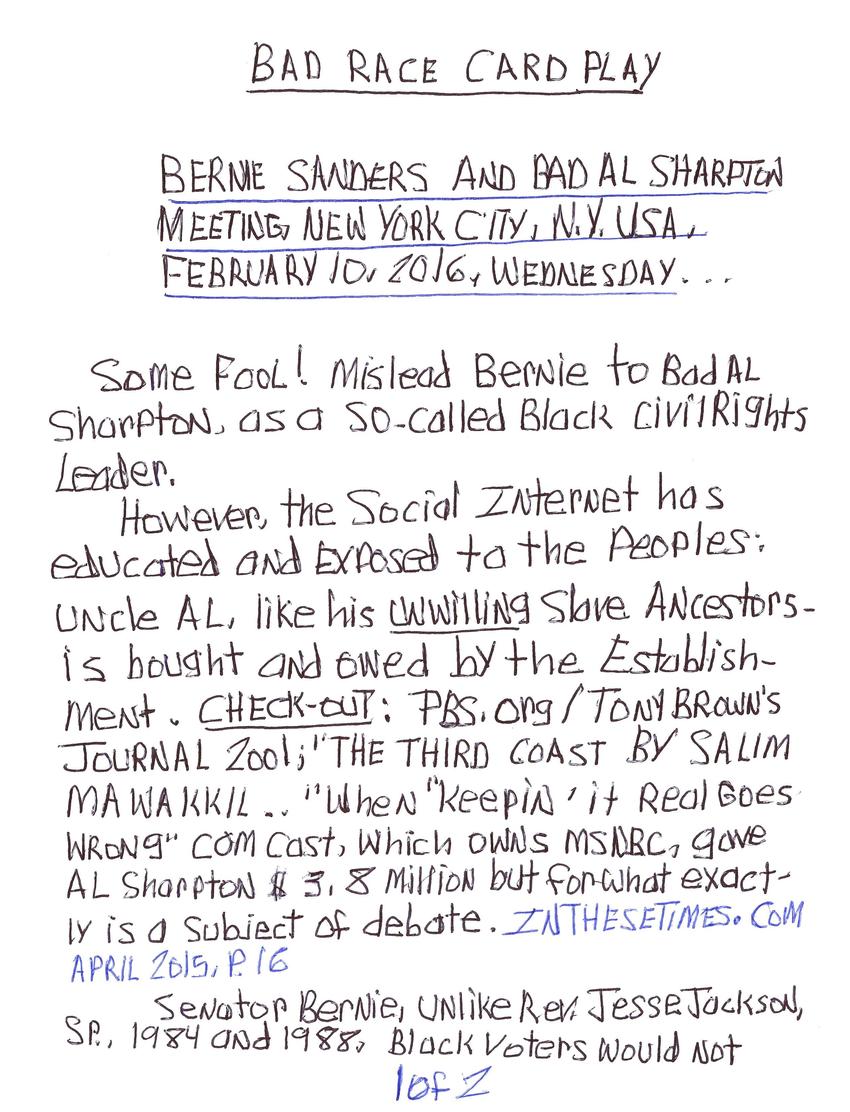 BAD RACE CARD PLAY
BERNIE SANDERS AND BAD AL SHARPTON
MEETING, NEW YORK CITY, N.Y. USA,
FEBRUARY 10, 2016, WEDNESDAY...
Some Fool! Mislead Bernie to Bad AL
Sharpton, as a so-called Black Civil Rights
Leader.
However, the Social Internet has
educated and Exposed to the Peoples:
Uncle AL, like his unwilling Slave Ancestors-
is bought and owed by the Establish-
ment. CHECK-OUT: PBS.org/TONY BROWN'S
JOURNAL 2001; "THE THIRD COAST BY SALIM
MAWAKKIL.. "When "keepin' it Real Goes
WRONG" COMCast, which owns MSNBC, gave
AL Sharpton $ 3.8 Million but for what exact-
ly is a Subject of debate. INTHESETIMES.COM
APRIL 2015, P.16
Senator Bernie, unlike Rev. Jesse Jackson,
SR., 1984 and 1988, Black Voters would not
1 of 2